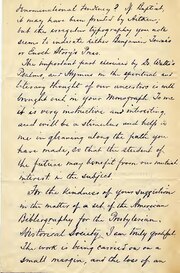 Denominational tendency? If Baptist,
it may have been printed by Aitken,
but the exegetic typography you note
seems to indicate either Benjamin Towne's
or Enoch Story's Press.
The important past services by Dr. Watts's
Psalms, and Hymns in the spiritual and
literary thought of our ancestors is well
brought out in your Monograph. To me
it is very instructive, and interesting,
and will be a stimulus and help to
me in gleaning along the path you
have made, so that the student of
the future may benefit from our mutual
interest in the subject.
For the kindness of your suggestion
in the matter of a set of the American
Bibliography for the Presbyterian
Historical Society, I am truly grateful.
The work is being carried on on a
small margin, and the loss of an